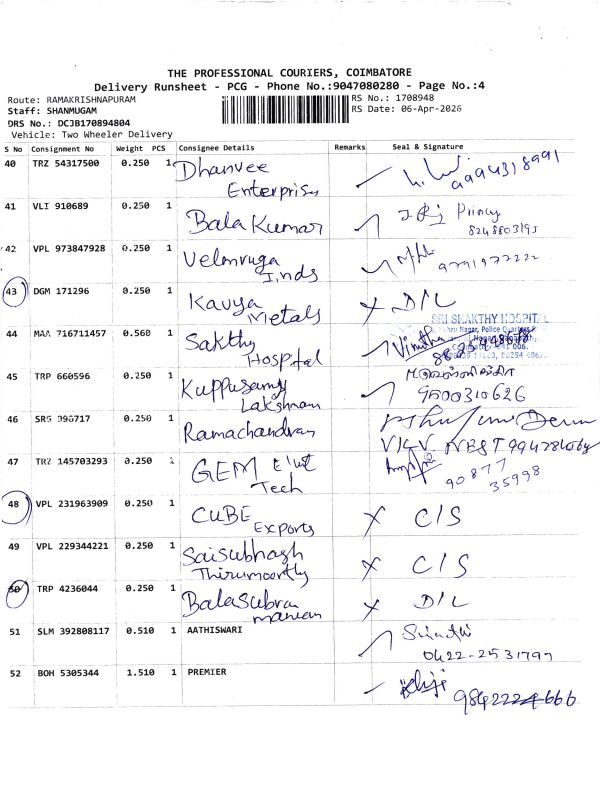 THE PROFESSIONAL COURIERS, COIMBATORE
Delivery Runsheet - PCG - Phone No.:9047080280 - Page No.:4
Route: RAMAKRISHNAPURAM RS No.: 1708948
Staff: SHANMUGAM RS Date: 06-Apr-2026
DRS No.: DCJB170894804
Vehicle: Two Wheeler Delivery
S No Consignment No Weight PCS Consignee Details Remarks Seal & Signature
40 TRZ 54317500 0.250 1 Dhanvee
Enterprises 9994318991
41 VLI 910689 0.250 1 Bala Kumar
8248803195
42 VPL 973847928 0.250 1 Velmruga
Inds 9791977222
43 DGM 171296 0.250 1 Kavya
Metals x D/L
SRI SHAKTHY HOSPITAL
44 MAA 716711457 0.560 1 Sakthy
Hospital Vinitha
45 TRP 660596 0.250 1 Kuppusamy
Lakshman 9500310626
46 0.250 1 Ramachandran
47 TRZ 145703293 0.250 1 GEM
Tech 90877
35998
48 VPL 231963909 0.250 1 CUBE
Exports x C/S
49 VPL 229344221 0.250 1 Saisubhash
Thirumoorthy x C/S
50 TRP 4236044 0.250 1 Balasubra
manian x D/L
51 SLM 392808117 0.510 1 AATHISWARI
0422-2531797
52 BOH 5305344 1.510 1 PREMIER